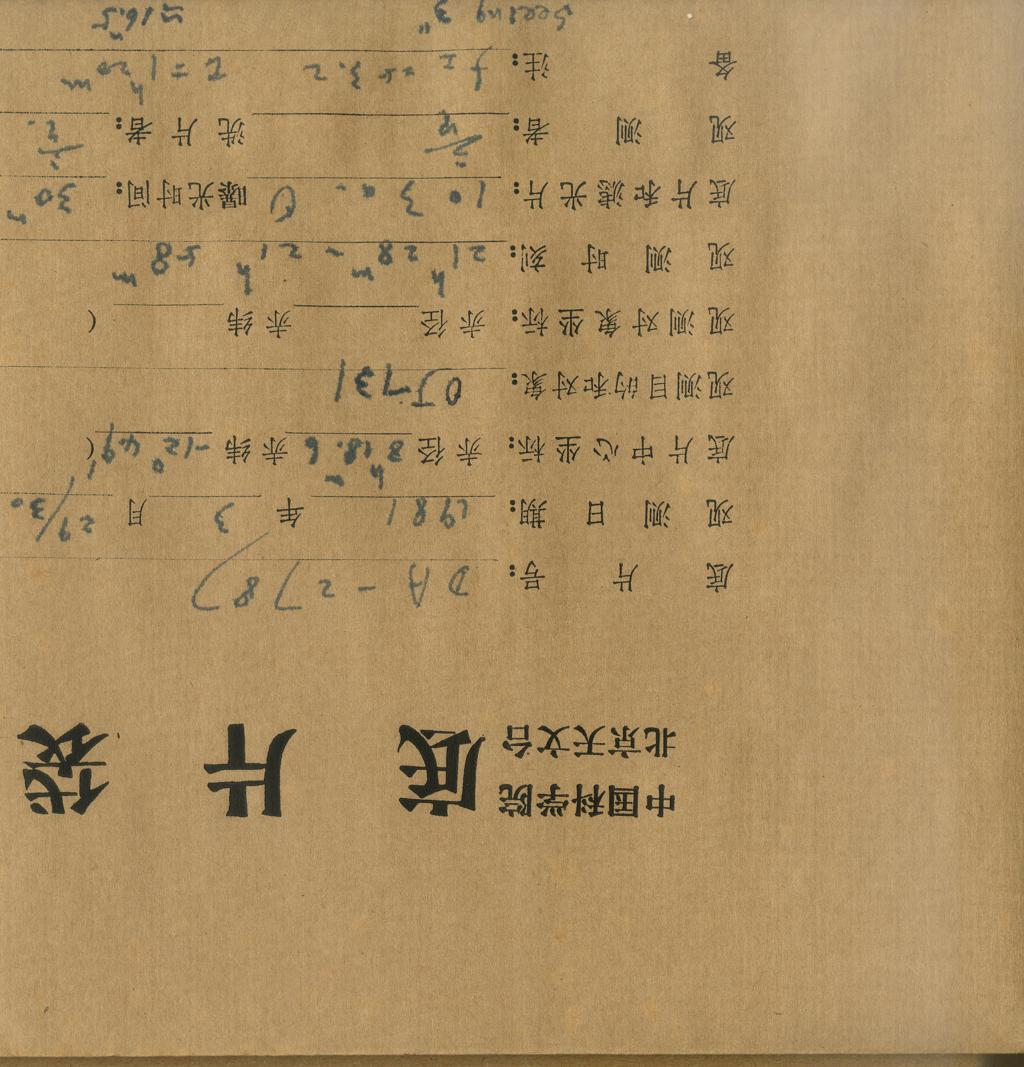 中国科学院
北京天文台 底片袋
底片号: DA-278)
观测日期: 1981年3月29/30
底片中心坐标: 赤径 8h18.m6 赤纬 -12°49′(
观测目的和对象: OJ-131
观测对象坐标: 赤径 赤纬 (
观测时刻: 21h28m~21h58m
底片和滤光片: 103a-O 曝光时间: 30m
观测者: 洗片者:
备注: t=1h20m
Seeing 3" 16.m5